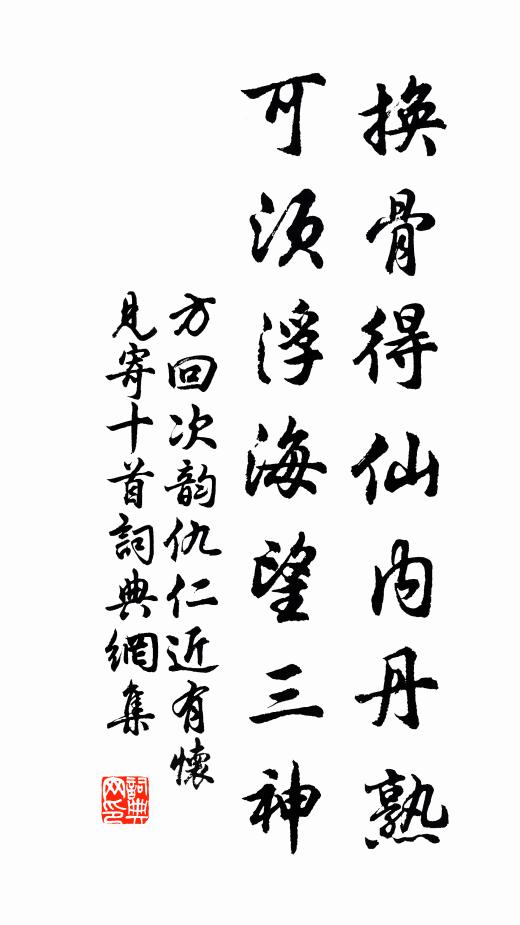 換骨得仙内丹熟
可須浮海望三神
方回次韵仇仁近有懷
見寄十首詞典網集
詞典
网印